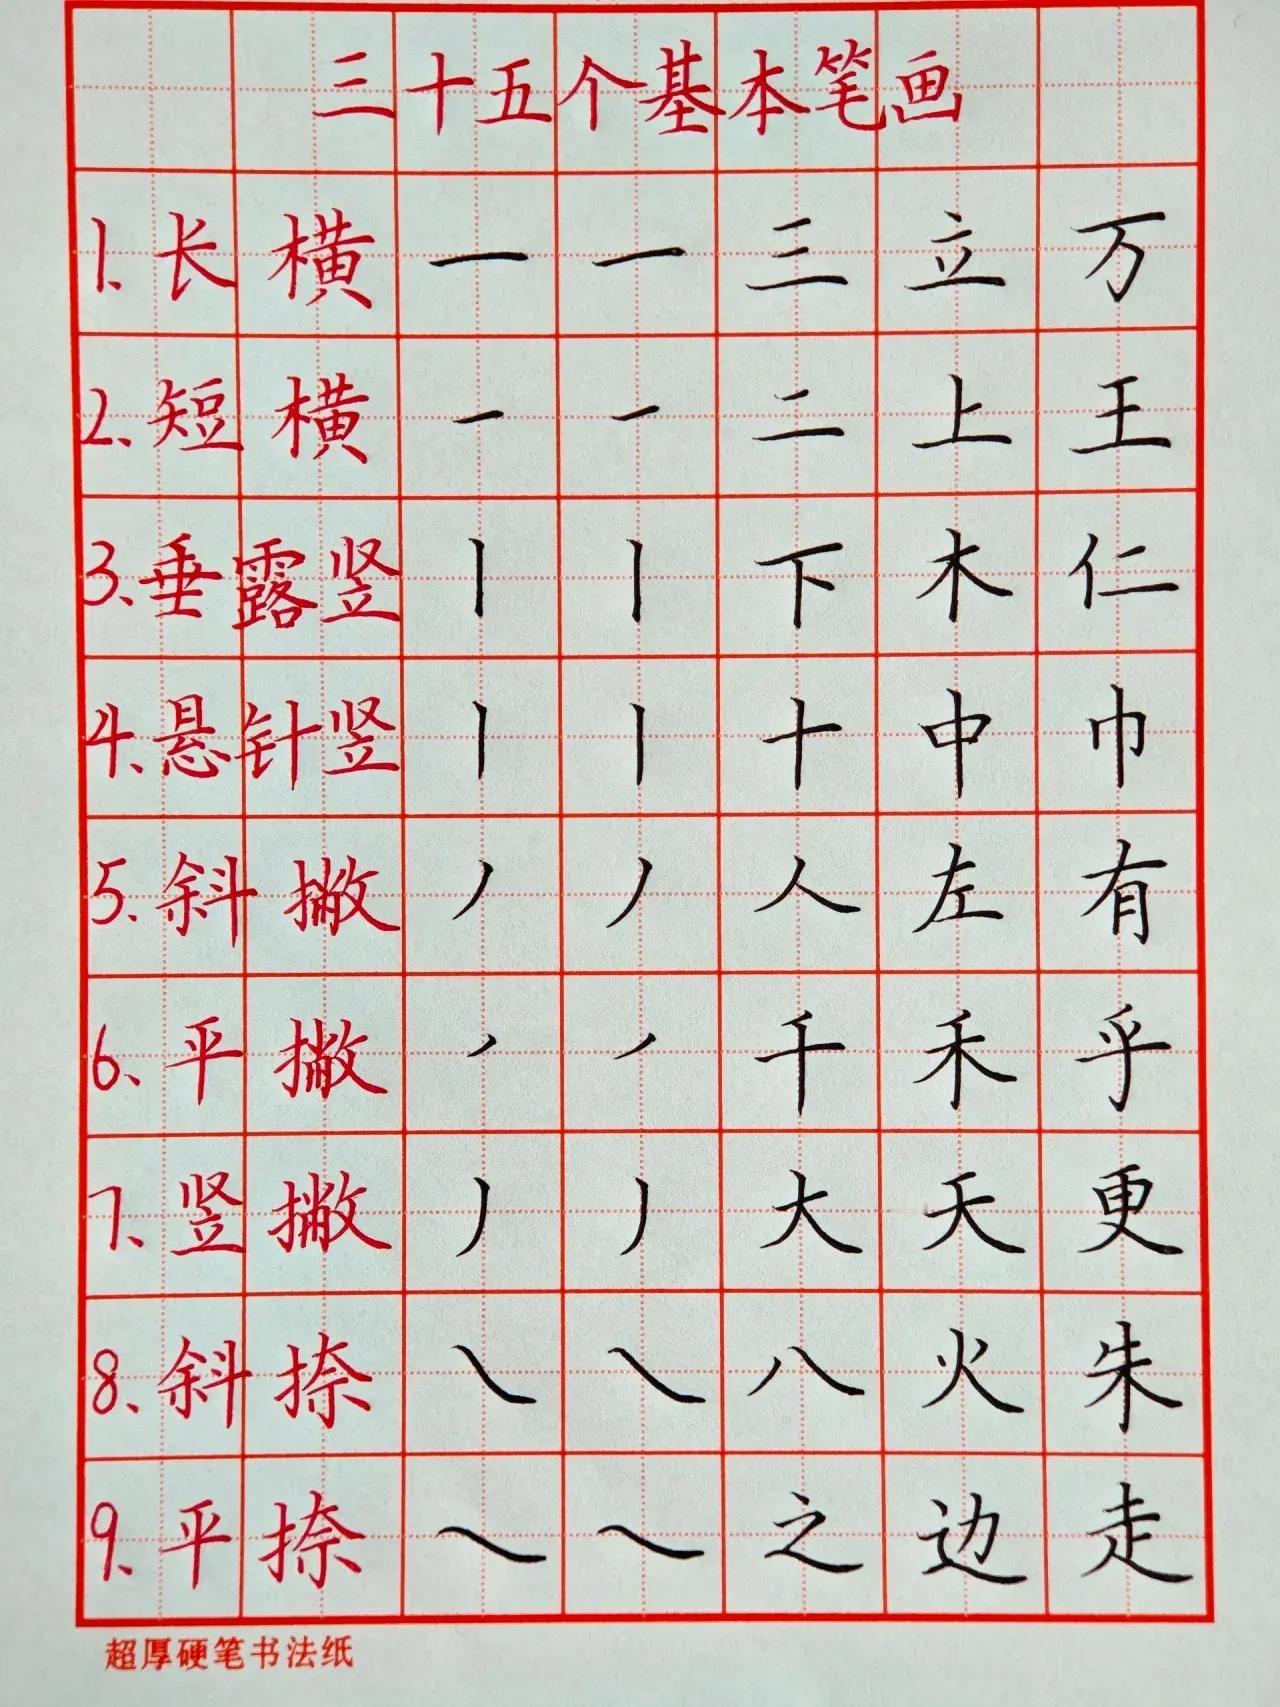 三十五个基本笔画
1、长横 一 一 三 立 万
2、短横 一 一 二 上 王
3、垂露竖 丨 丨 下 木 仁
4、悬针竖 丨 丨 十 中 巾
5、斜撇 丿 丿 人 左 有
6、平撇 ㇒ ㇒ 千 禾 乎
7、竖撇 丿 丿 大 天 更
8、斜捺 ㇏ ㇏ 八 火 朱
9、平捺 ㇏ ㇏ 之 边 走
超厚硬笔书法纸